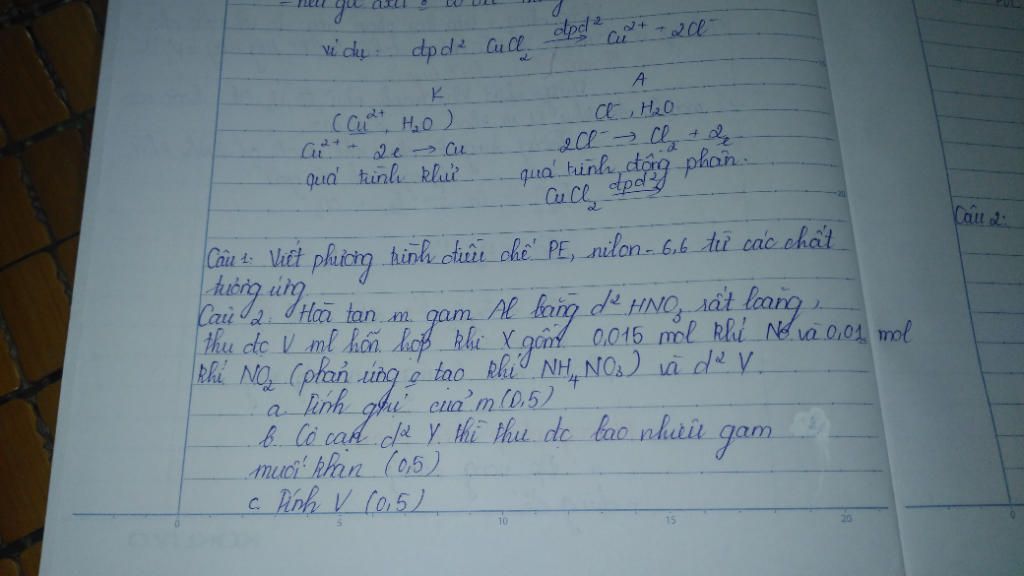 ví dụ: dpd² CuCl₂ →(dpd²) Cu²⁺ + 2Cl⁻
K A
(Cu²⁺, H₂O) Cl⁻, H₂O
Cu²⁺ + 2e → Cu 2Cl⁻ → Cl₂ + 2e
quá trình khử quá trình, đông phân.
CuCl₂ →(dpd²)
Câu 1: Viết phương trình điều chế PE, nilon-6,6 từ các chất
tương ứng
Câu 2: Hòa tan m gam Al bằng d² HNO₃ rất loãng,
thu đc V ml hỗn hợp khí X gồm 0,015 mol khí và 0,01 mol
khí NO₂ (phản ứng o tạo khí NH₄NO₃) và d² Y.
a. Tính gtrị của m (0,5)
b. Cô cạn d² Y thì thu đc bao nhiêu gam
muối khan (0,5)
c. Tính V (0,5)
Câu 2:
0 5 10 15 20